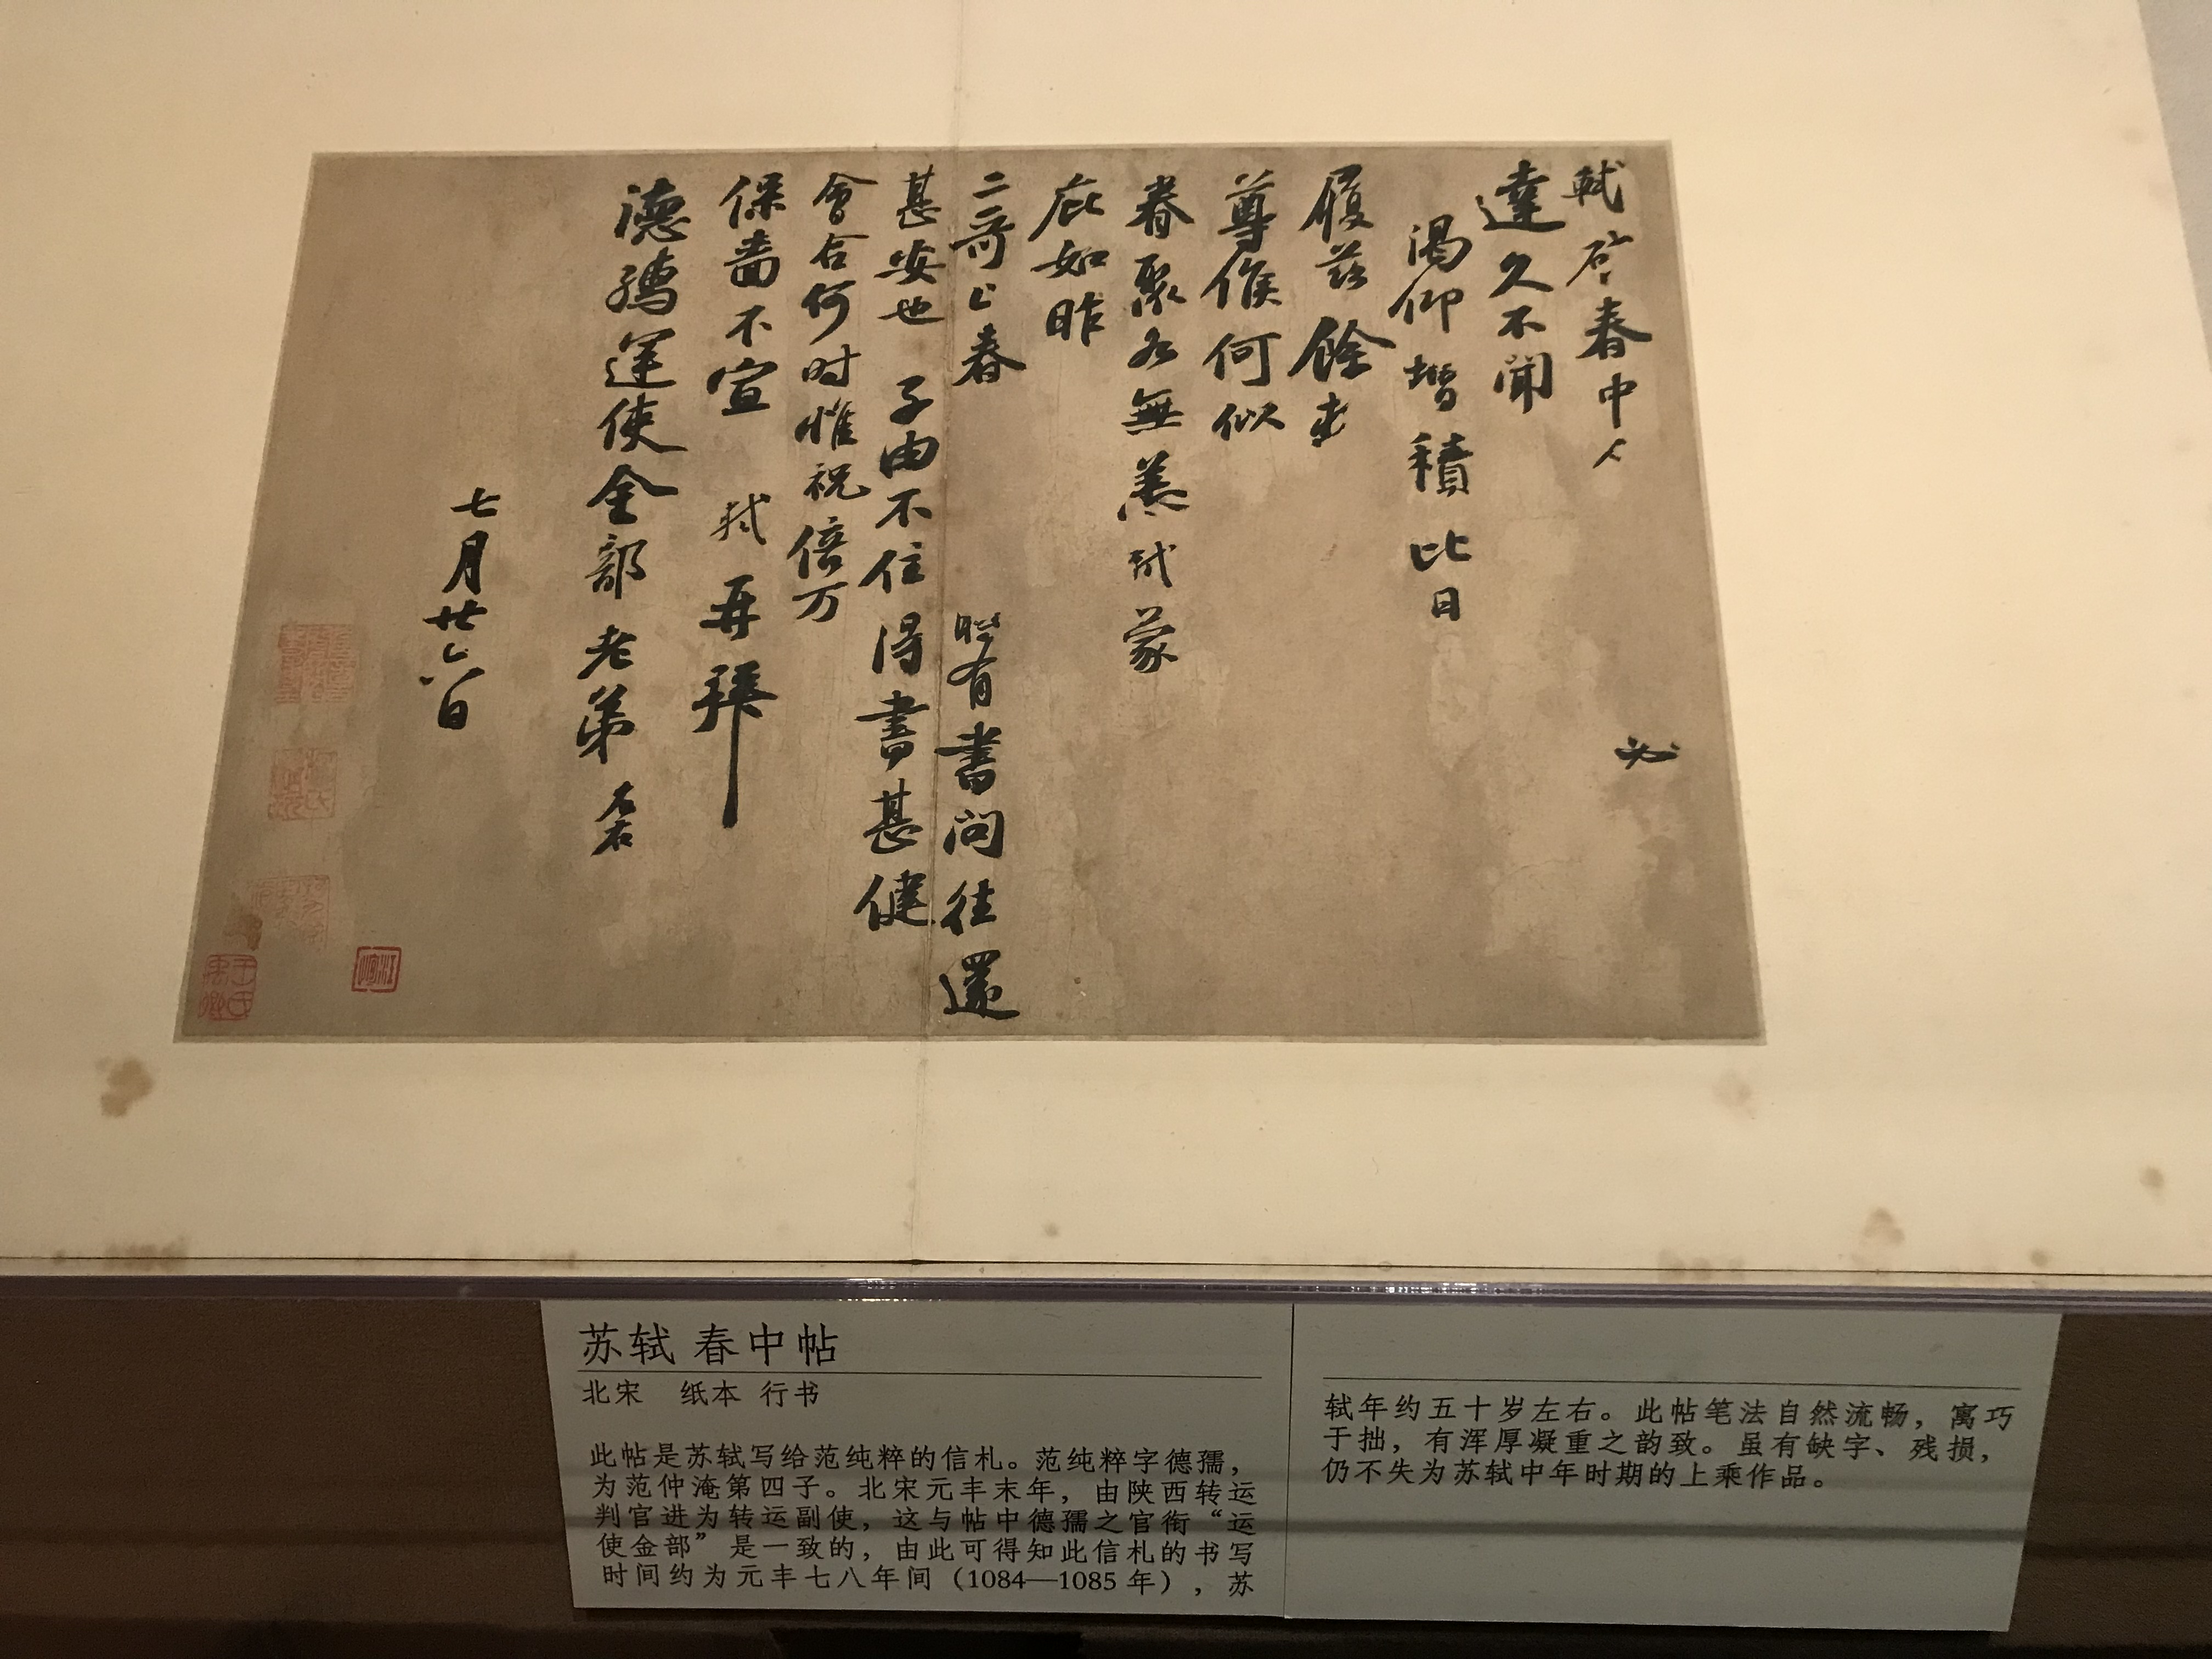 軾啓春中人必
達久不聞
渴仰增積比日
履茲餘暑
尊候何似
眷聚各無恙軾蒙
庇如昨
二哥上春 有書問往還
甚安也子由不住得書甚健
會合何時惟祝倍万
保嗇不宣 軾再拜
德孺運使金部老弟
七月廿六日
苏轼 春中帖
北宋 纸本 行书
此帖是苏轼写给范纯粹的信札。范纯粹字德孺，
为范仲淹第四子。北宋元丰末年，由陕西转运
判官进为转运副使，这与帖中德孺之官衔“运
使金部”是一致的，由此可得知此信札的书写
时间约为元丰七八年间（1084—1085 年），苏
轼年约五十岁左右。此帖笔法自然流畅，寓巧
于拙，有浑厚凝重之韵致。虽有缺字、残损，
仍不失为苏轼中年时期的上乘作品。